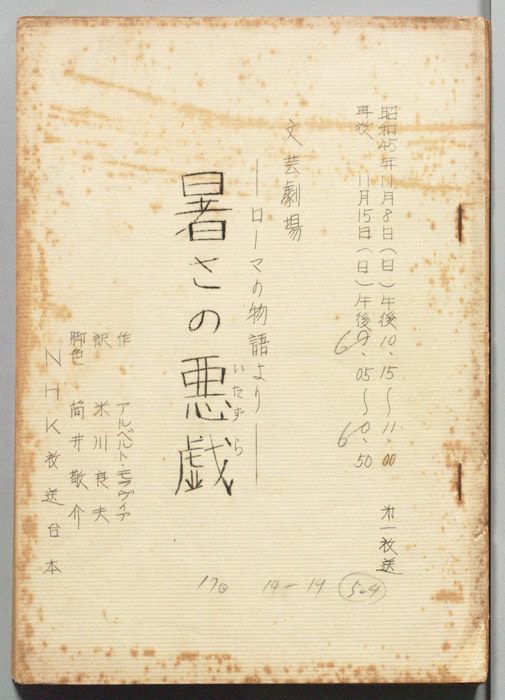 昭和45年11月8日(日)午後10、15〜11、00 オ一放送
再放 11月15日(日)午後6、05〜6、50
文芸劇場
―ローマの物語より―
暑さの悪戯
いたずら
作 アルベルト・モラヴィア
訳 米川良夫
脚色 筒井敬介
NHK放送台本
170 14-19 504